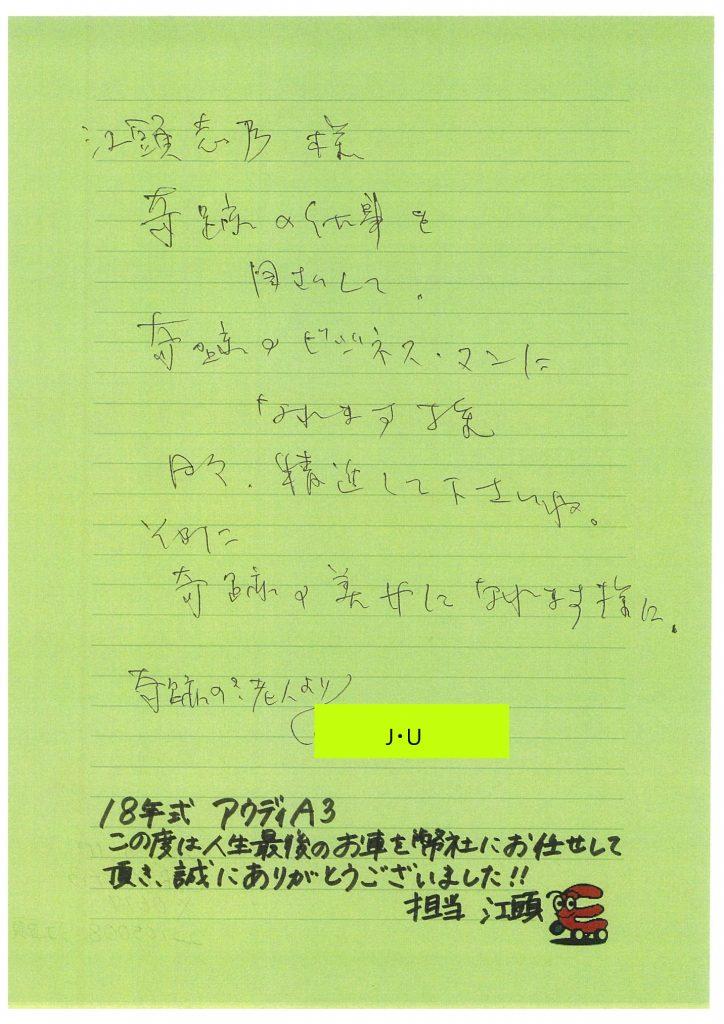 江頭志乃 様
奇跡の仕事を
目ざして.
奇跡のビジネス・マンに
なれます様
日々.精進して下さいね。
その上に
奇跡の美女になれます様に.
奇跡の老人より
J・U
18年式 アウディA3
この度は人生最後のお車を弊社にお任せして
頂き、誠にありがとうございました!!
担当 江頭